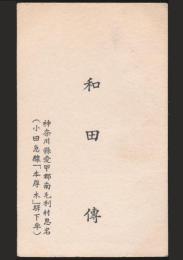 和田傳
神奈川縣愛甲郡南毛利村恩名
(小田急線「本厚木」驛下車)